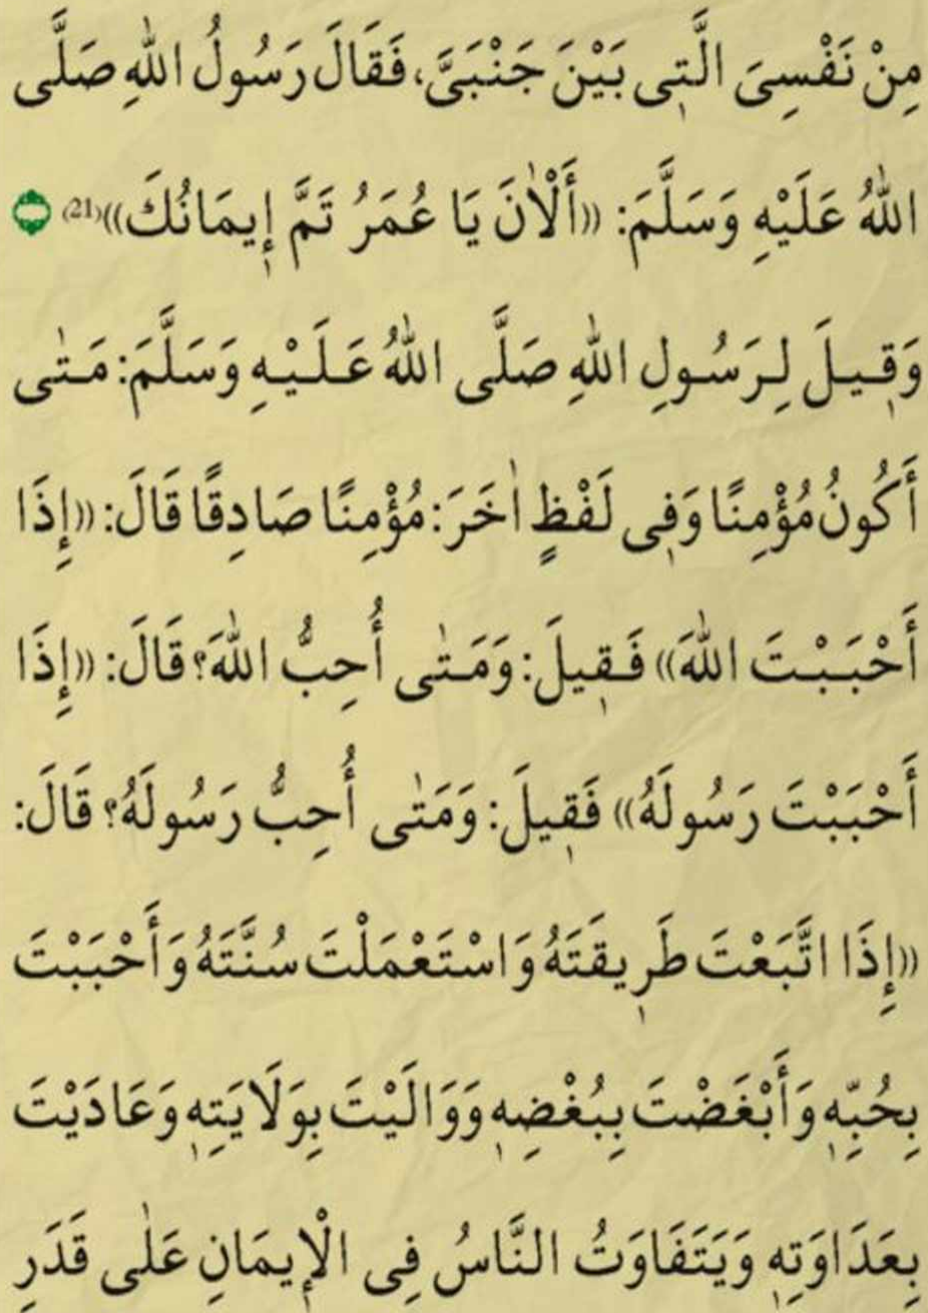 مِنْ نَفْسِىَ الَّتِى بَيْنَ جَنْبَىَّ، فَقَالَ رَسُولُ اللّٰهِ صَلَّى
اللّٰهُ عَلَيْهِ وَسَلَّمَ: ((أَلْاٰنَ يَا عُمَرُ تَمَّ إِيمَانُكَ))(21)
وَقِيلَ لِرَسُولِ اللّٰهِ صَلَّى اللّٰهُ عَلَيْهِ وَسَلَّمَ: مَتٰى
أَكُونُ مُؤْمِنًا وَفِى لَفْظٍ اٰخَرَ: مُؤْمِنًا صَادِقًا قَالَ: ((إِذَا
أَحْبَبْتَ اللّٰهَ)) فَقِيلَ: وَمَتٰى أُحِبُّ اللّٰهَ؟ قَالَ: ((إِذَا
أَحْبَبْتَ رَسُولَهُ)) فَقِيلَ: وَمَتٰى أُحِبُّ رَسُولَهُ؟ قَالَ:
((إِذَا اتَّبَعْتَ طَرِيقَتَهُ وَاسْتَعْمَلْتَ سُنَّتَهُ وَأَحْبَبْتَ
بِحُبِّهٖ وَأَبْغَضْتَ بِبُغْضِهٖ وَوَالَيْتَ بِوَلَايَتِهٖ وَعَادَيْتَ
بِعَدَاوَتِهٖ وَيَتَفَاوَتُ النَّاسُ فِى الْإِيمَانِ عَلٰى قَدَرِ